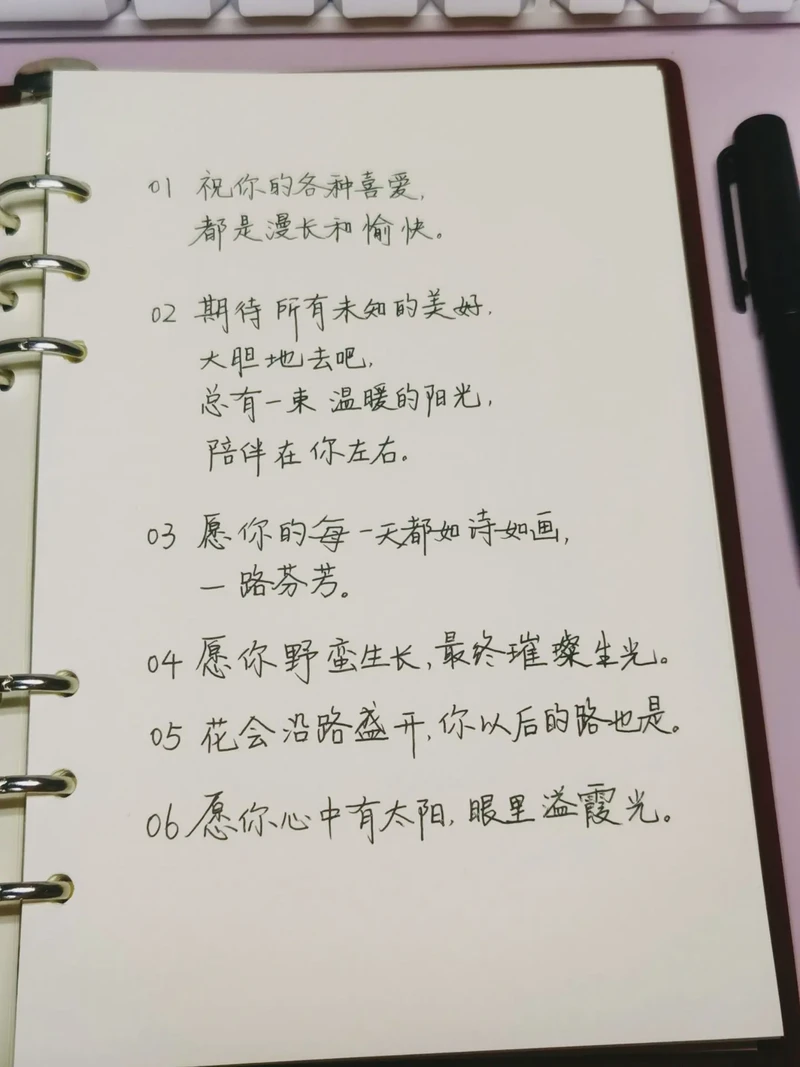 01 祝你的各种喜爱,
都是漫长和愉快。
02 期待所有未知的美好,
大胆地去吧,
总有一束温暖的阳光,
陪伴在你左右。
03 愿你的每一天都如诗如画,
一路芬芳。
04 愿你野蛮生长,最终璀璨生光。
05 花会沿路盛开,你以后的路也是。
06 愿你心中有太阳,眼里溢霞光。